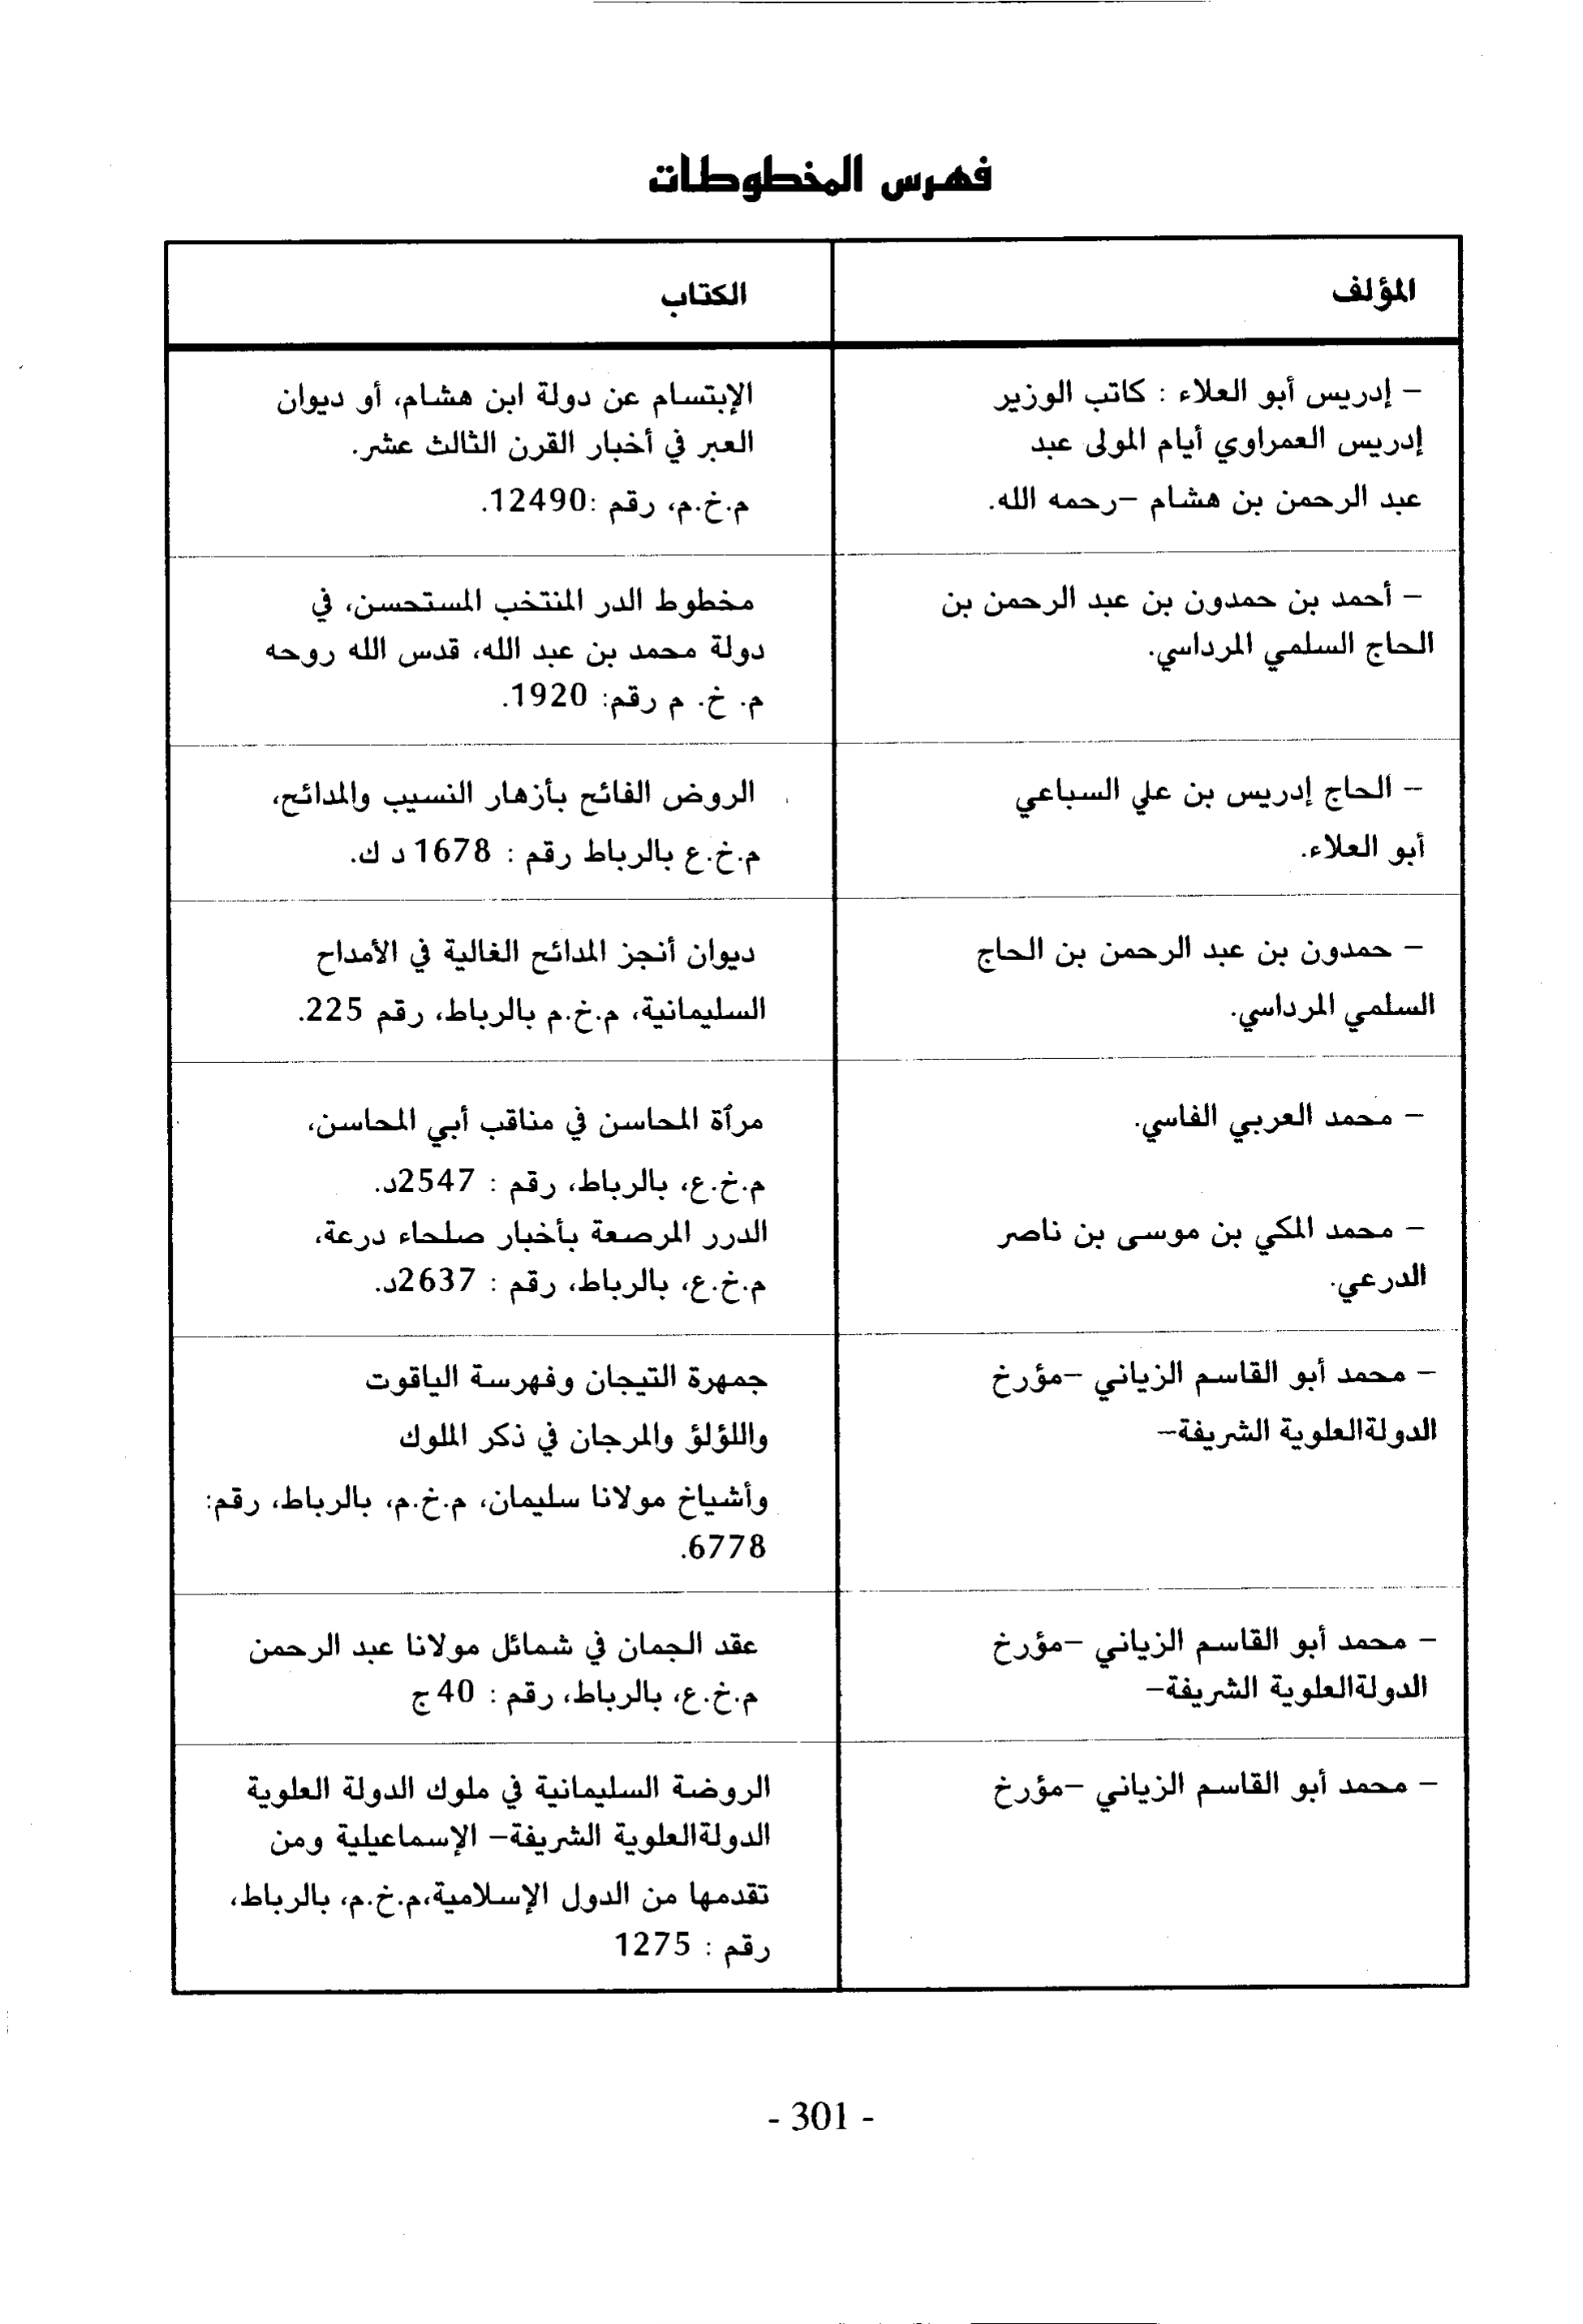 فهرس المخطوطات
المؤلف
الكتاب
– إدريس أبو العلاء : كاتب الوزير
إدريس العمراوي أيام المولى عبد
عبد الرحمن بن هشام –رحمه الله.
الإبتسام عن دولة ابن هشام، أو ديوان
العبر في أخبار القرن الثالث عشر.
م.خ.م، رقم :12490.
– أحمد بن حمدون بن عبد الرحمن بن
الحاج السلمي المرداسي.
مخطوط الدر المنتخب المستحسن، في
دولة محمد بن عبد الله، قدس الله روحه
م. خ. م رقم: 1920.
– الحاج إدريس بن علي السباعي
أبو العلاء.
الروض الفائح بأزهار النسيب والمدائح،
م.خ.ع بالرباط رقم : 1678 د ك.
– حمدون بن عبد الرحمن بن الحاج
السلمي المرداسي.
ديوان أنجز المدائح الغالية في الأمداح
السليمانية، م.خ.م بالرباط، رقم 225.
– محمد العربي الفاسي.
مرآة المحاسن في مناقب أبي المحاسن،
م.خ.ع، بالرباط، رقم : 2547د.
– محمد المكي بن موسى بن ناصر
الدرعي.
الدرر المرصعة بأخبار صلحاء درعة،
م.خ.ع، بالرباط، رقم : 2637د.
– محمد أبو القاسم الزياني –مؤرخ
الدولةالعلوية الشريفة–
جمهرة التيجان وفهرسة الياقوت
واللؤلؤ والمرجان في ذكر الملوك
وأشياخ مولانا سليمان، م.خ.م، بالرباط، رقم:
6778.
– محمد أبو القاسم الزياني –مؤرخ
الدولةالعلوية الشريفة–
عقد الجمان في شمائل مولانا عبد الرحمن
م.خ.ع، بالرباط، رقم : 40ج
– محمد أبو القاسم الزياني –مؤرخ
الروضة السليمانية في ملوك الدولة العلوية
الدولةالعلوية الشريفة– الإسماعيلية ومن
تقدمها من الدول الإسلامية،م.خ.م، بالرباط،
رقم : 1275
- 301 -